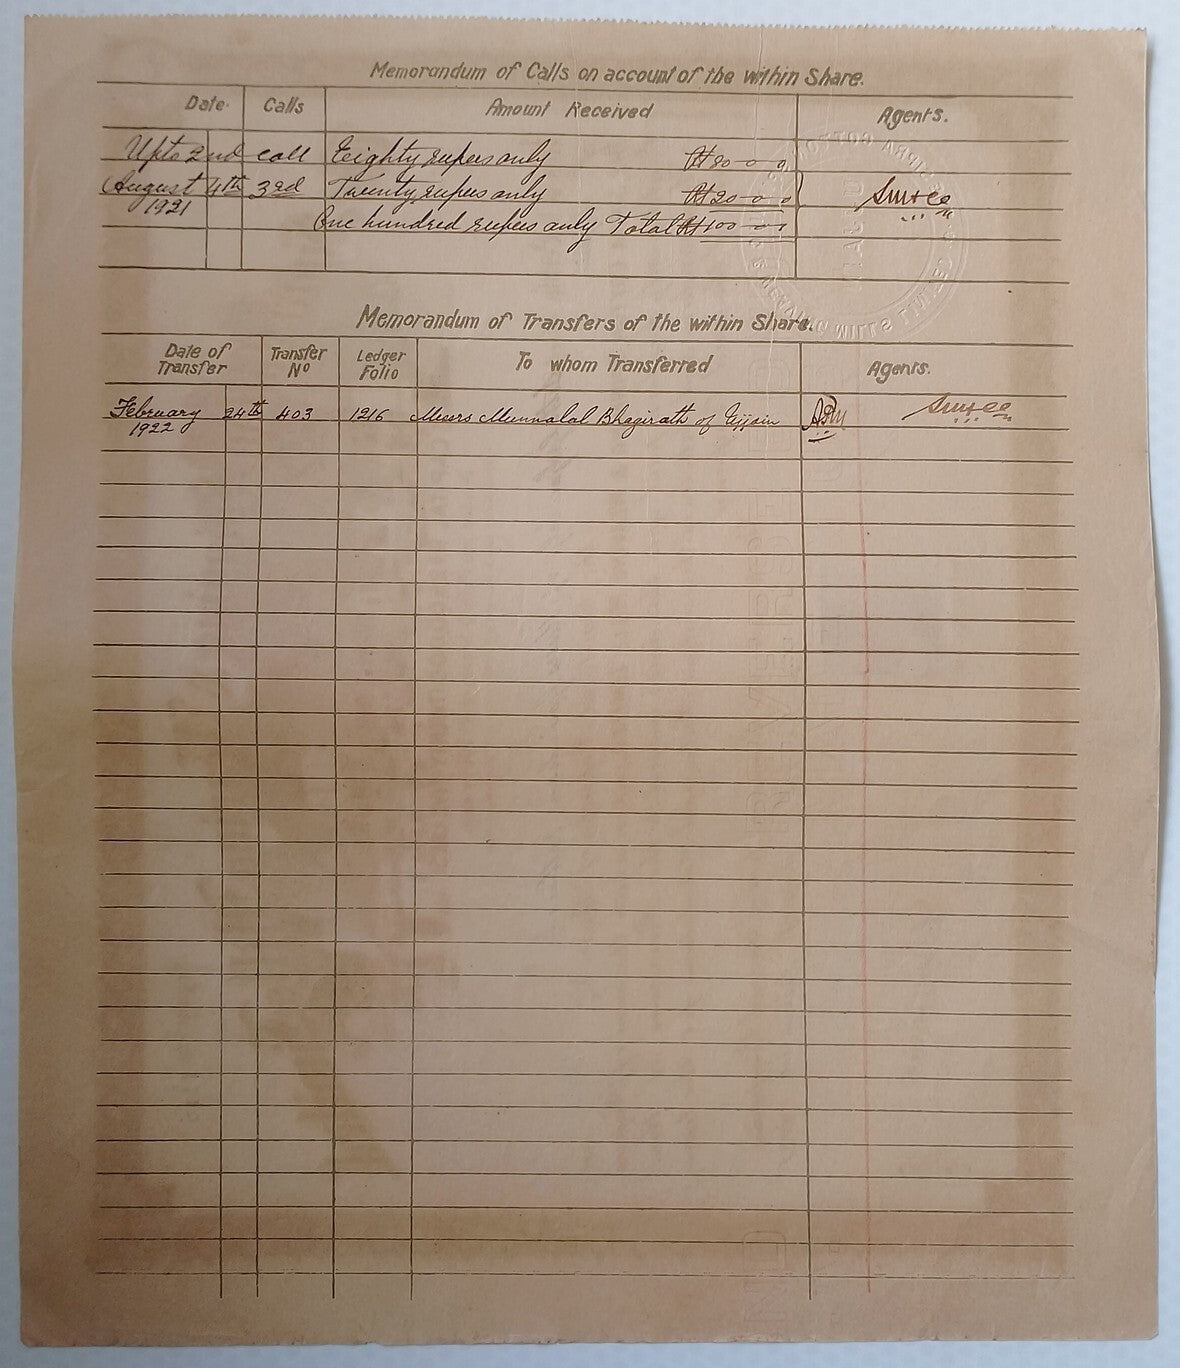 Memorandum of Calls on account of the within Share.
Date. Calls Amount Received Agents.
Upto 2nd call Eighty rupees only Rs 80-0-0
August 4th 3rd Twenty rupees only Rs 20-0-0
1921
One hundred rupees only Total Rs 100-0-0
Memorandum of Transfers of the within Share.
Date of Transfer Transfer No Ledger Folio To whom Transferred Agents.
February 24th 403 1216 Messrs Munnalal Bhagirath of Ujjain
1922